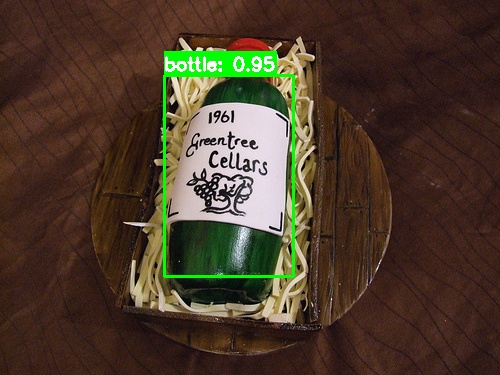 bottle: 0.95
1961
Greentree
Cellars